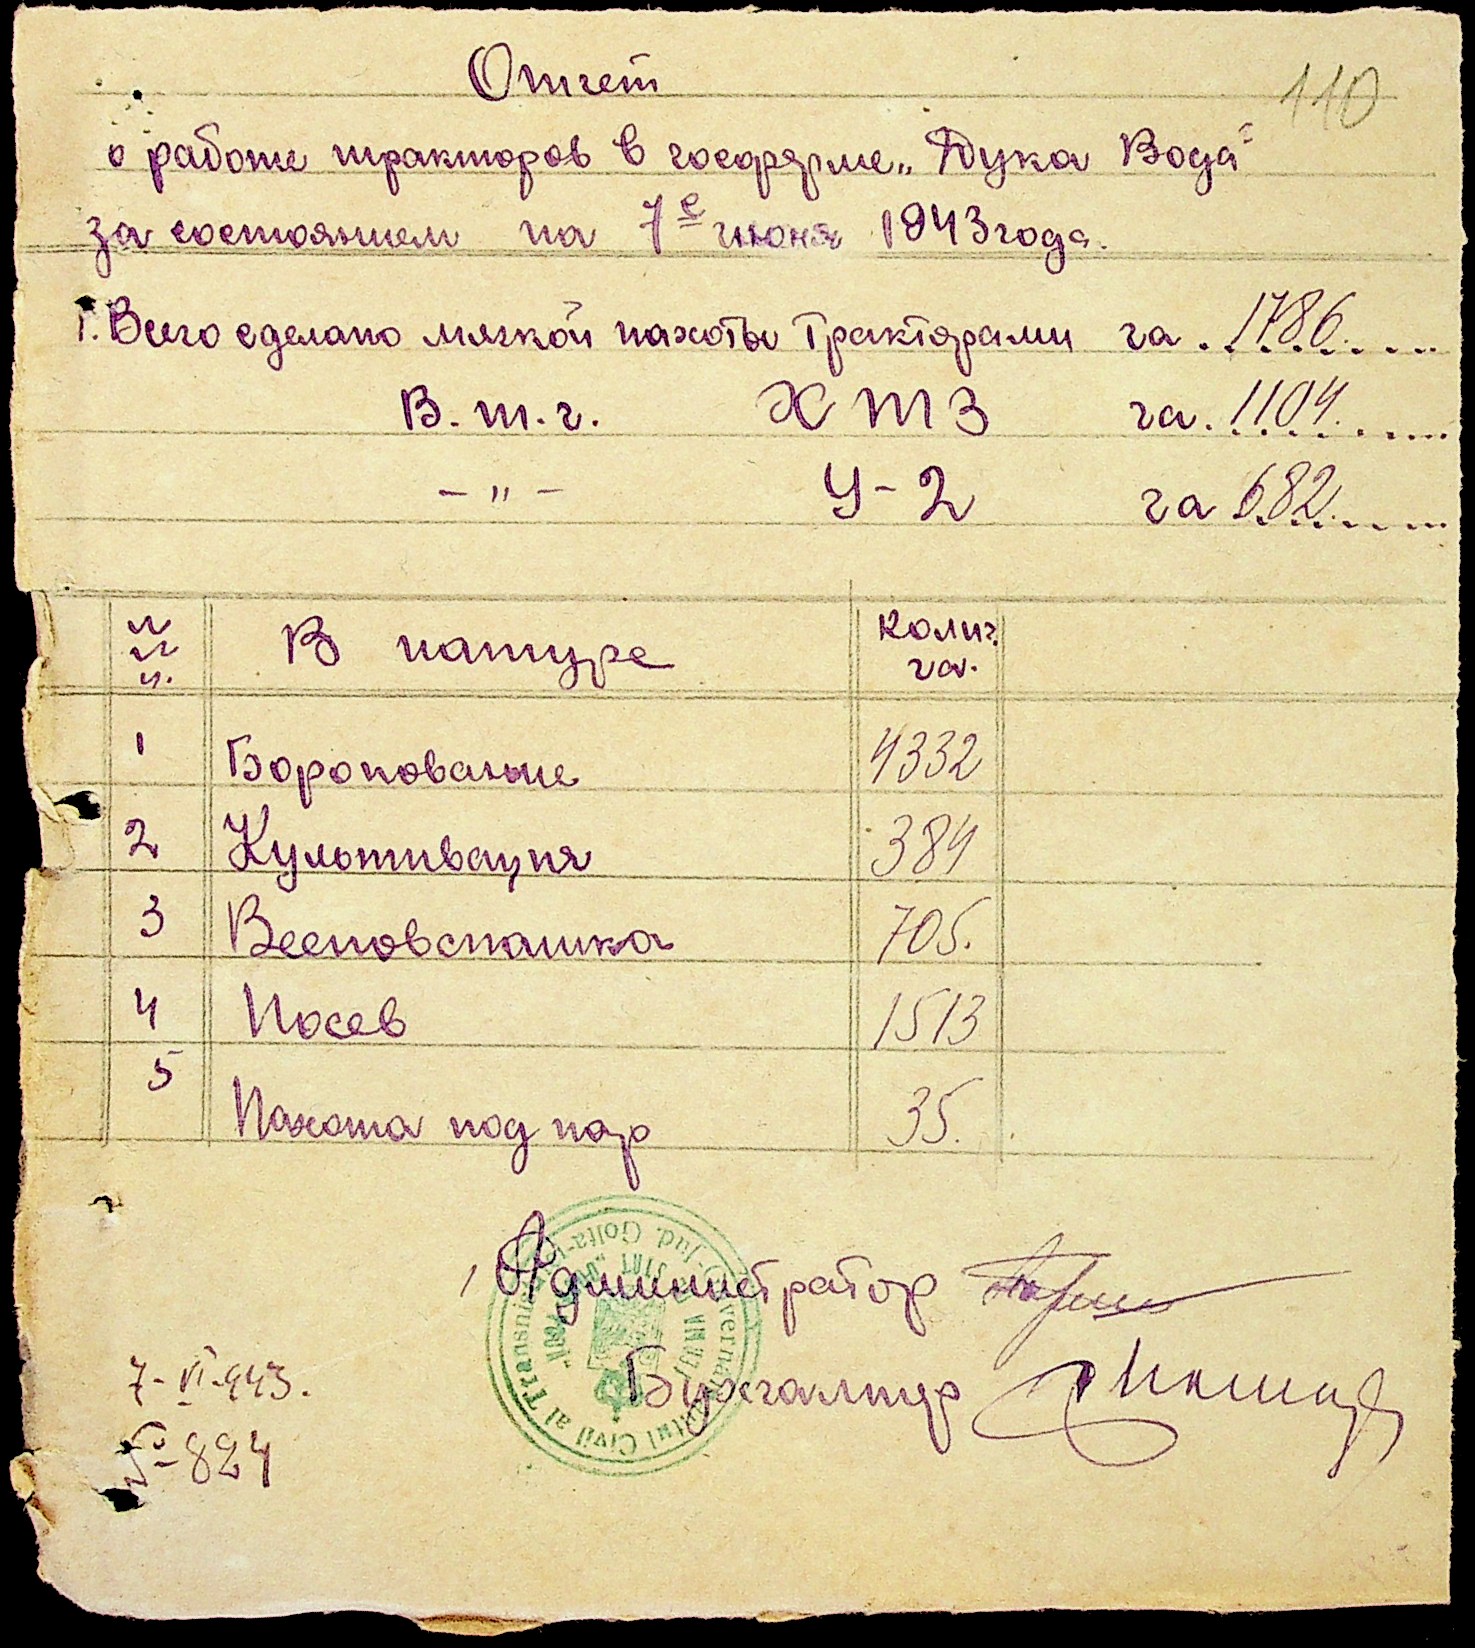 110
Отчет
о работе тракторов в госфярме „Дука Вода“
за состоянием на 7е июня 1943 года.
1. Всего сделано мягкой пахоты Тракторами га . 1786.
В. т. ч. ХТЗ га. 1104.
- " - У-2 га 682.
п п п. В натуре колич. га.
1 Бороновање 4332
2 Культивация 384
3 Весновспашка 705.
4 Посев 1513
5 Пахота под пар 35.
Администратор
Бухгалтер
7-VI-943.
№ 824
Guvernământul Civil al Transnistriei
Jud. Golta